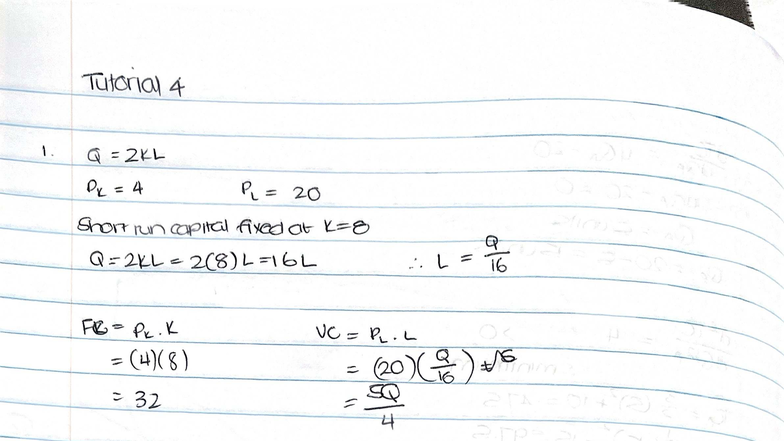 Tutorial 4
1. Q = 2KL
P_K = 4 P_L = 20
Short run capital fixed at K=8
Q = 2KL = 2(8)L = 16L ∴ L = Q/16
FC = P_K . K VC = P_L . L
= (4)(8) = (20)(Q/16)
= 32 = 5Q/4